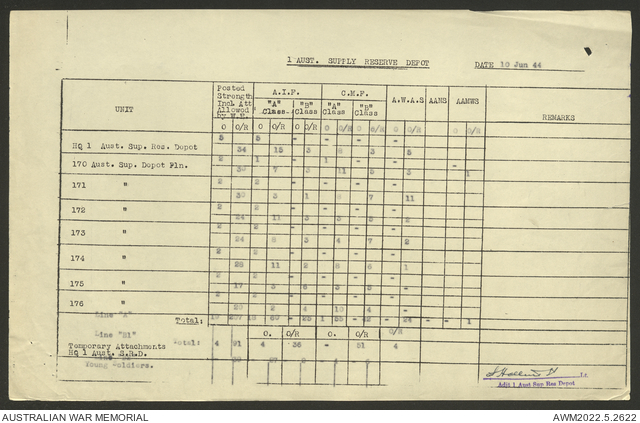 1 AUST. SUPPLY RESERVE DEPOT DATE 10 Jun 44
UNIT Posted Strength Incl. Att Allowed by W.E. A.I.F. C.M.F. A.W.A.S AANS AAMWS REMARKS
"A" Class "B" Class "A" Class "B" Class
O O/R O O/R O O/R O O/R O O/R O O/R O O/R
5 5 - - -
HQ 1 Aust. Sup. Res. Depot 34 15 3 8 3 5
2 1 - 1 - -
170 Aust. Sup. Depot Pln. 39 7 3 11 5 3 1
2 2 - - -
171 " 3 1 7 11
2 2 - - -
172 " 24 11 3 2
2 2 - - -
173 " 24 8 3 4 7 2
2 2 - - -
174 " 28 11 2 8 6 1
2 2 - - -
175 " 17 3
2 2 - - -
176 " 20 2 4 10 4
Line "A" Total: 19 207 18 60 - 25 1 - - 24 - - 1
Line "B1" O. O/R O. O/R O/R
Temporary Attachments Total: 4 91 4 36 - 51 4
HQ 1 Aust. S.R.D.
Young Soldiers.
Lt
Adjt 1 Aust Sup Res Depot
AUSTRALIAN WAR MEMORIAL AWM2022.5.2622